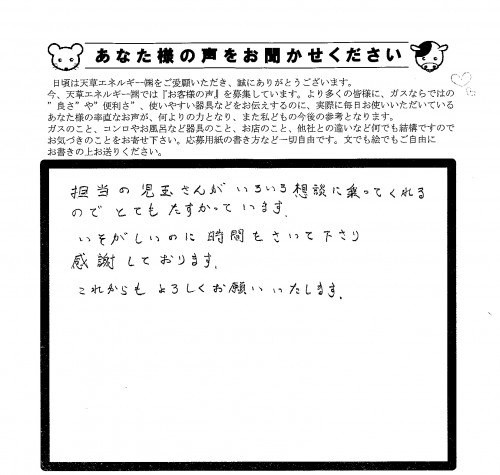 あなた様の声をお聞かせください
日頃は天草エネルギー㈱をご愛顧いただき、誠にありがとうございます。
今、天草エネルギー㈱では『お客様の声』を募集しています。より多くの皆様に、ガスならではの
”良さ”や”便利さ”、使いやすい器具などをお伝えするのに、実際に毎日お使いいただいている
あなた様の率直なお声が、何よりの力となり、また私どもの今後の参考となります。
ガスのこと、コンロやお風呂など器具のこと、お店のこと、他社との違いなど何でも結構ですので
お気づきのことをお寄せ下さい。応募用紙の書き方など一切自由です。文でも絵でもご自由に
お書きの上お送りください。
担当の児玉さんがいろいろ想談に乗ってくれる
のでとてもたすかっています.
いそがしいのに時間をさいて下さり
感謝しております.
これからもよろしくお願いいたします.